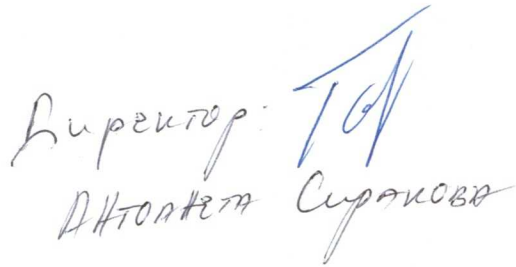 Директор:
Антоанета Сиракова